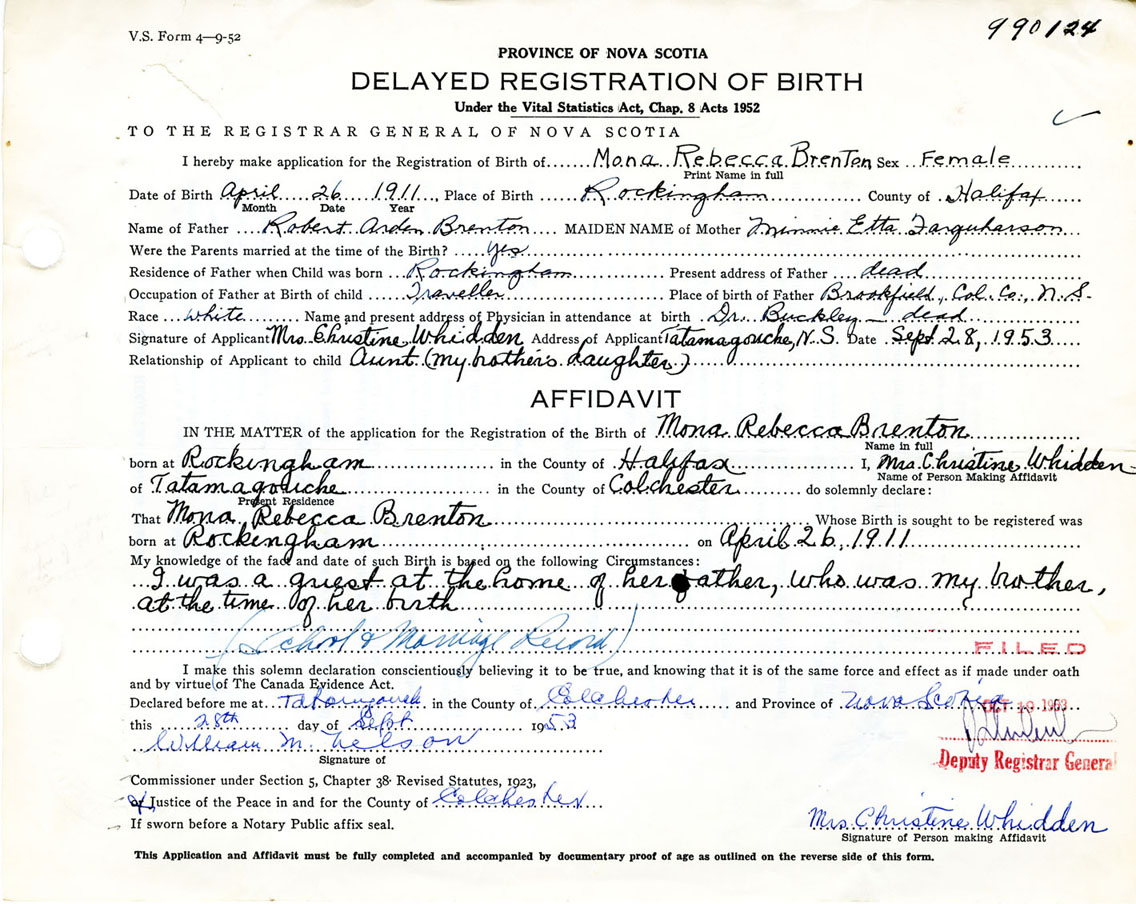 V.S. Form 4—9-52
990124
PROVINCE OF NOVA SCOTIA
DELAYED REGISTRATION OF BIRTH
Under the Vital Statistics Act, Chap. 8 Acts 1952
TO THE REGISTRAR GENERAL OF NOVA SCOTIA
I hereby make application for the Registration of Birth of Mona Rebecca Brenton Sex Female
Print Name in full
Date of Birth April 26 1911, Place of Birth Rockingham County of Halifax
Month Date Year
Name of Father Robert Arden Brenton MAIDEN NAME of Mother Minnie Etta Farquharson
Were the Parents married at the time of the Birth? Yes
Residence of Father when Child was born Rockingham Present address of Father dead
Occupation of Father at Birth of child Traveller Place of birth of Father Brookfield, Col. Co., N.S.
Race white Name and present address of Physician in attendance at birth Dr. Buckley — dead
Signature of Applicant Mrs. Christine Whidden Address of Applicant Tatamagouche, N.S. Date Sept. 28, 1953
Relationship of Applicant to child Aunt (my brother's daughter)
AFFIDAVIT
IN THE MATTER of the application for the Registration of the Birth of Mona Rebecca Brenton
Name in full
born at Rockingham in the County of Halifax I, Mrs. Christine Whidden
Name of Person Making Affidavit
of Tatamagouche in the County of Colchester do solemnly declare:
Present Residence
That Mona Rebecca Brenton Whose Birth is sought to be registered was
born at Rockingham on April 26, 1911
My knowledge of the fact and date of such Birth is based on the following Circumstances:
I was a guest at the home of her father, who was my brother,
at the time of her birth
(School & Marriage Record)
FILED
I make this solemn declaration conscientiously believing it to be true, and knowing that it is of the same force and effect as if made under oath
and by virtue of The Canada Evidence Act.
Declared before me at Tatamagouche in the County of Colchester and Province of Nova Scotia
OCT 10 1953
this 28th day of Sept 1953
William M. Nelson
Signature of
Deputy Registrar General
Commissioner under Section 5, Chapter 38 Revised Statutes, 1923,
or Justice of the Peace in and for the County of Colchester
If sworn before a Notary Public affix seal.
Mrs. Christine Whidden
Signature of Person making Affidavit
This Application and Affidavit must be fully completed and accompanied by documentary proof of age as outlined on the reverse side of this form.